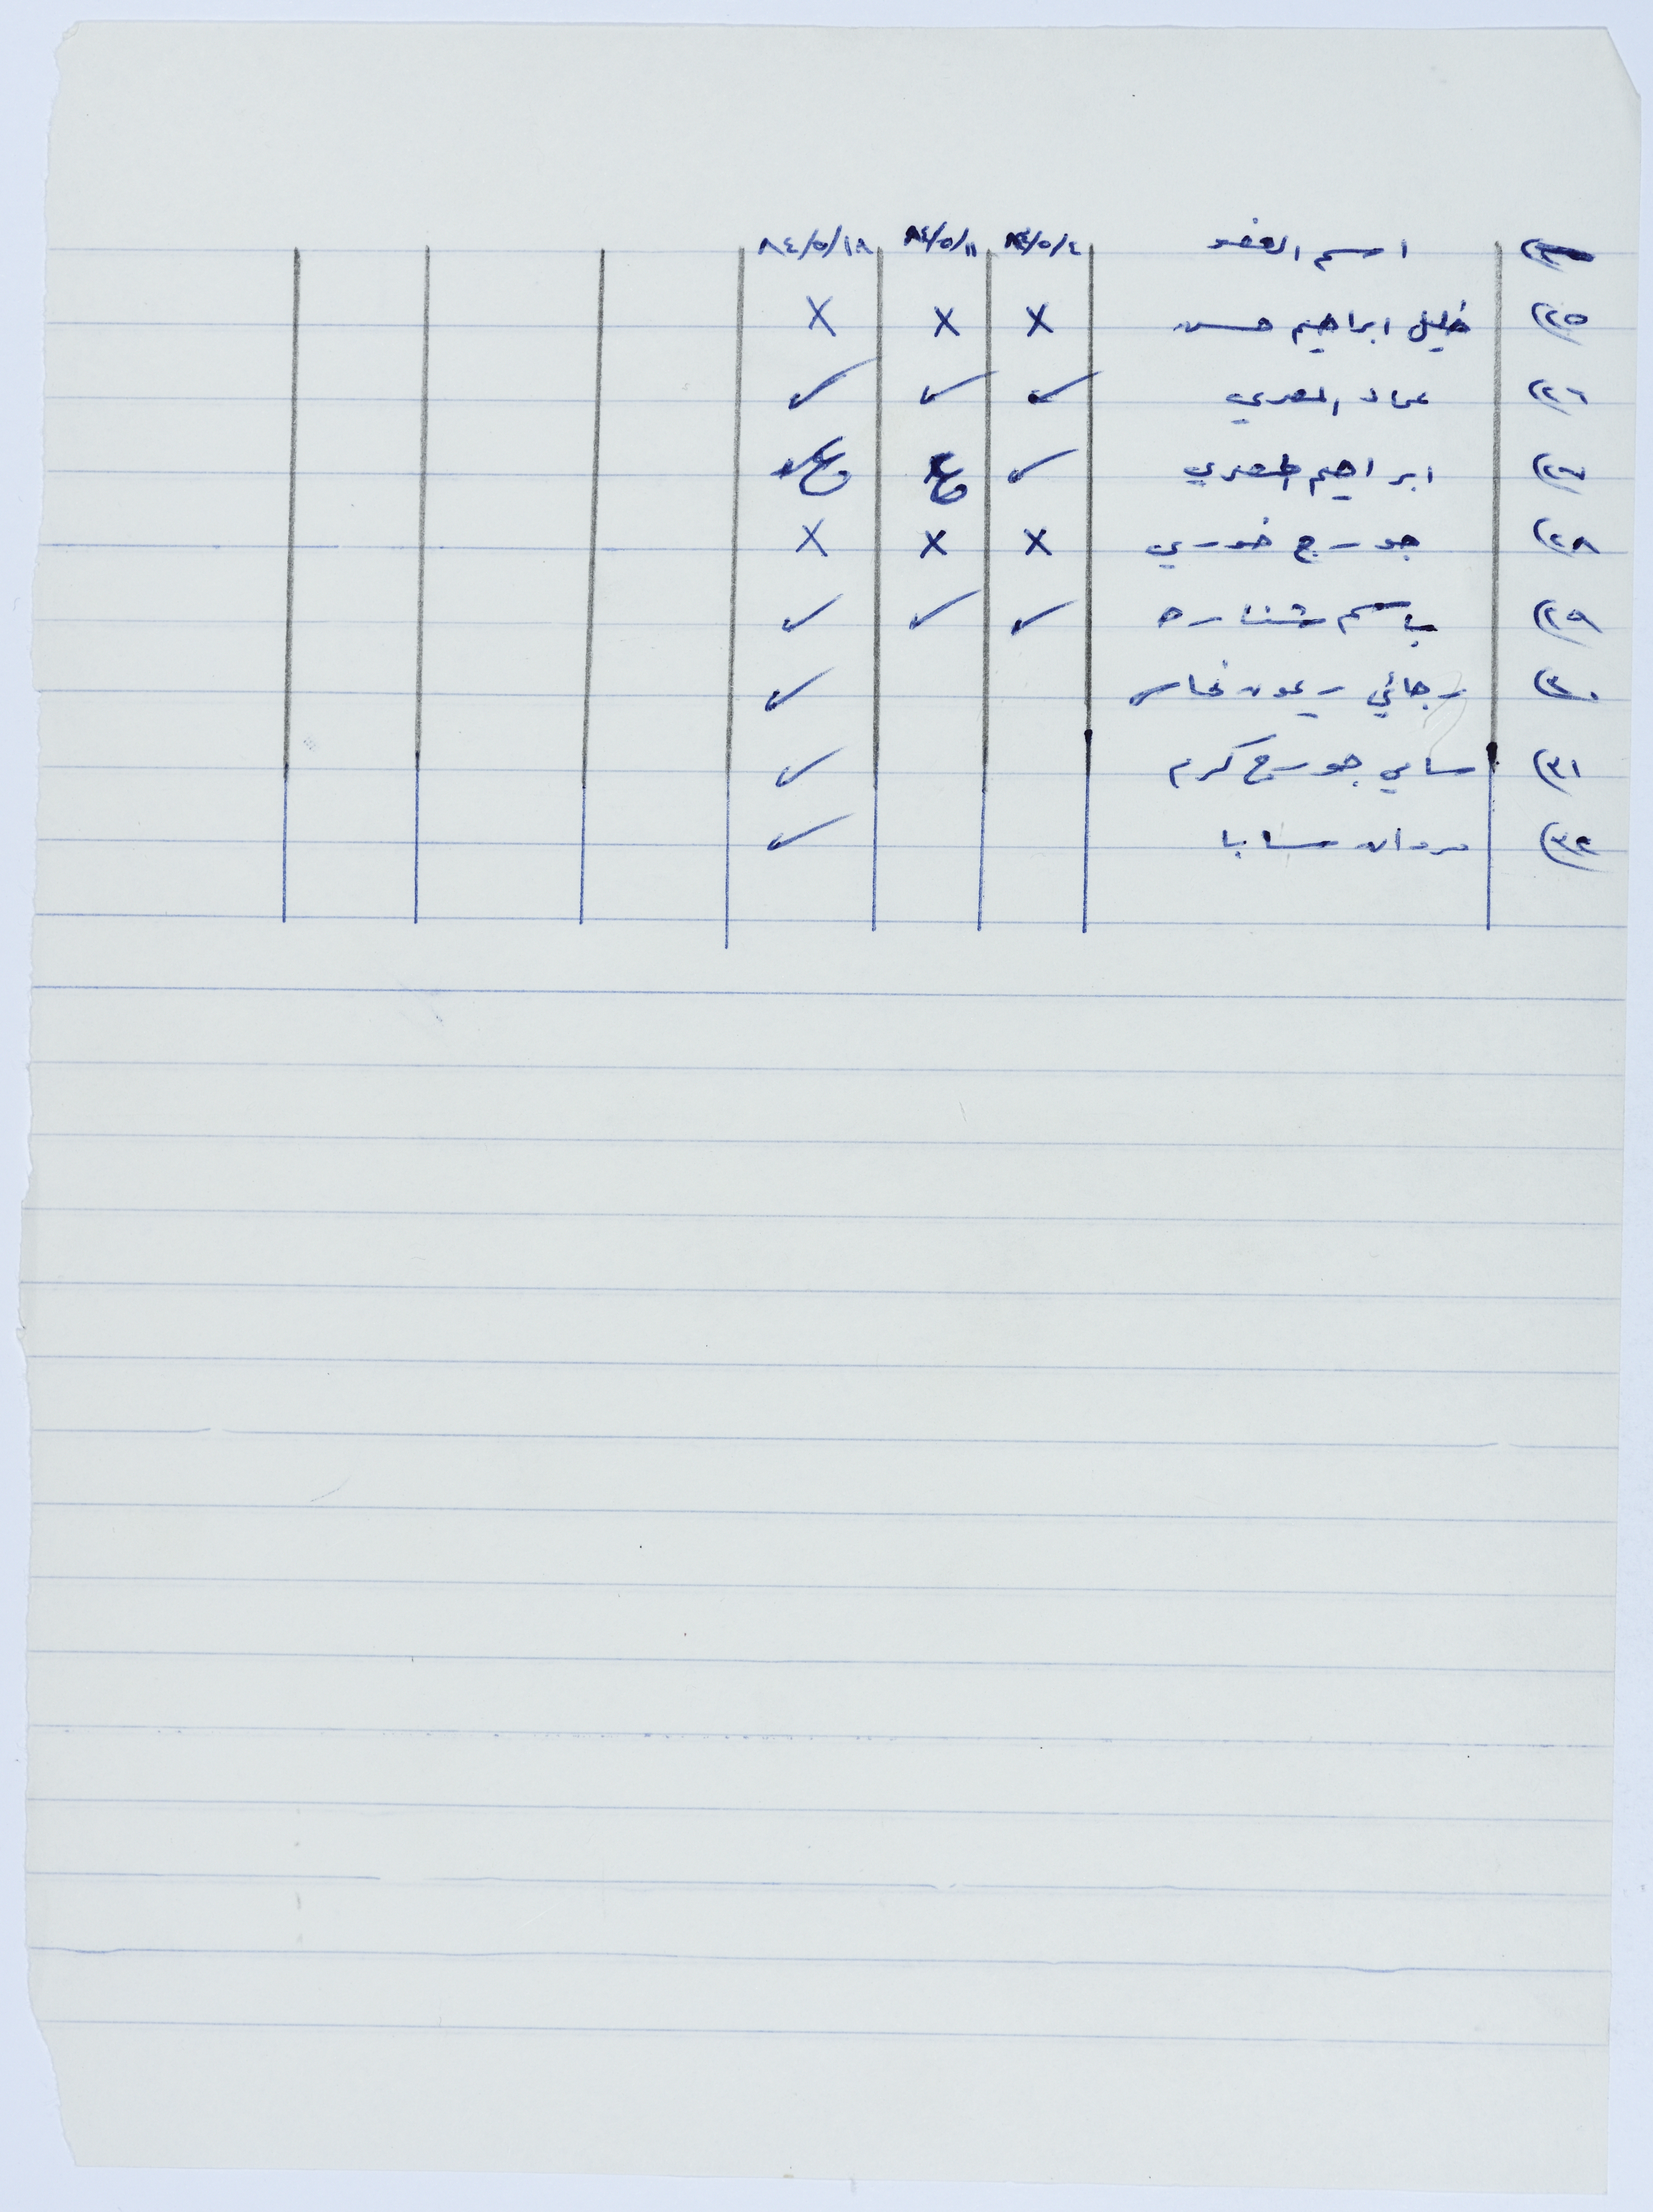 اسم العضو ٨٤/٥/٤ ٨٤/٥/١١ ٨٤/٥/١٨
(٢٥ خليل ابراهيم حسن X X X
(٢٦ عماد المصري ✓ ✓ ✓
(٢٧ ابراهيم المصري ✓
(٢٨ جورج خوري X X X
(٢٩ باسم شنناره ✓ ✓ ✓
(٣٠ رجائي ريمون نحاس ✓
(٣١ سامي جورج كرم ✓
(٣٢ مروان سابا ✓